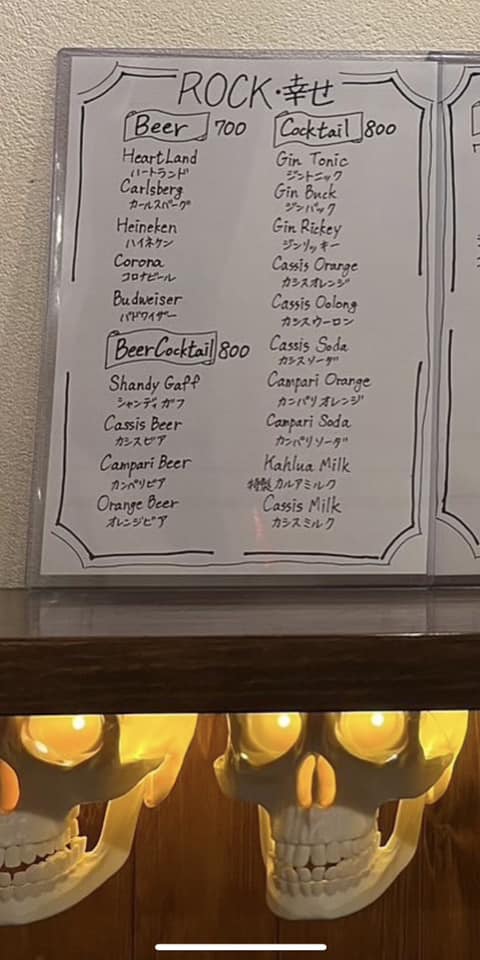 ROCK・幸せ
Beer 700
HeartLand
ハートランド
Carlsberg
カールスバーグ
Heineken
ハイネケン
Corona
コロナビール
Budweiser
バドワイザー
BeerCocktail 800
Shandy Gaff
シャンディガフ
Cassis Beer
カシスビア
Campari Beer
カンパリビア
Orange Beer
オレンジビア
Cocktail 800
Gin Tonic
ジントニック
Gin Buck
ジンバック
Gin Rickey
ジンリッキー
Cassis Orange
カシスオレンジ
Cassis Oolong
カシスウーロン
Cassis Soda
カシスソーダ
Campari Orange
カンパリオレンジ
Campari Soda
カンパリソーダ
Kahlua Milk
特製カルアミルク
Cassis Milk
カシスミルク